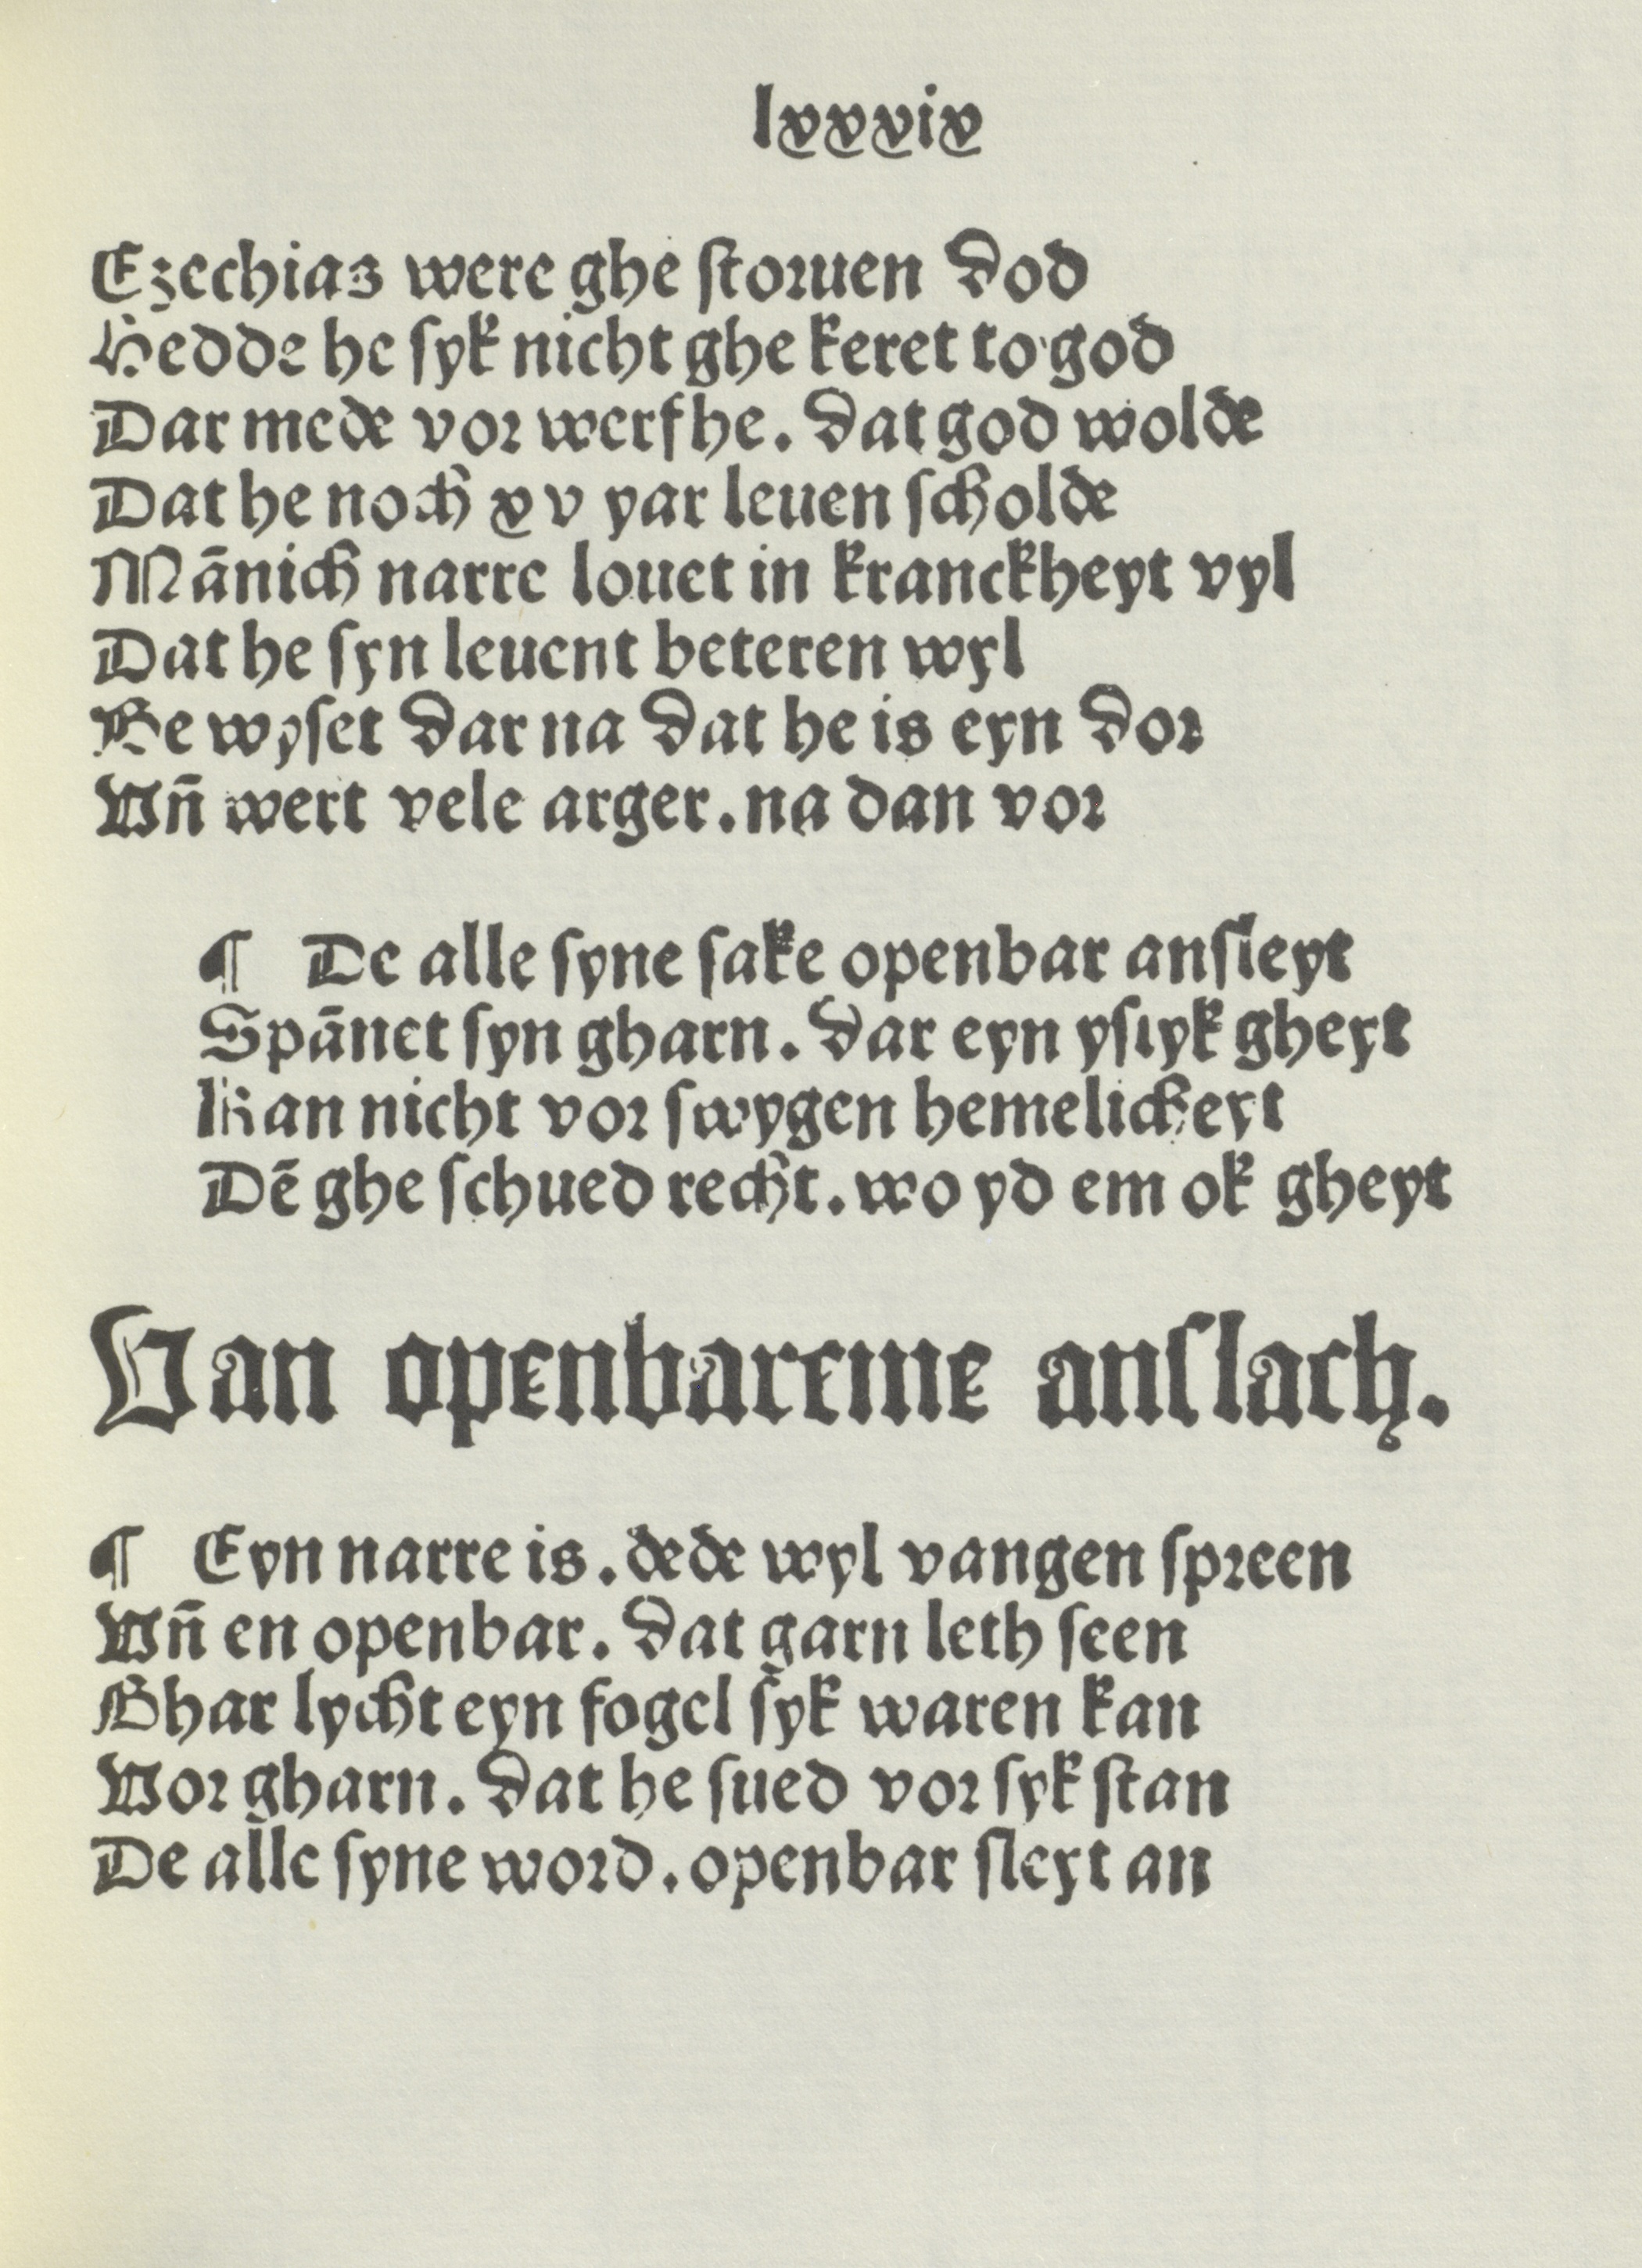 lxxxix
Ezechias were ghe storuen dod
Hedde he syk nicht ghe keret to god
Dar mede vor werf he. dat god wolde
Dat he noch xv yar leuen scholde
Mānich narre louet in kranckheyt vyl
Dat he syn leuent beteren wyl
He wyset dar na dat he is eyn dor
Vn̄ wert vele arger. na dan vor
¶ De alle syne sake openbar ansleyt
Spānet syn gharn. dar eyn yslyk gheyt
Kan nicht vor swygen hemelickeyt
Dē ghe schued recht. wo yd em ok gheyt
Van openbareme anslach.
¶ Eyn narre is. dede wyl vangen spreen
Vn̄ en openbar. dat garn leth seen
Ghar lycht eyn fogel syk waren kan
Vor gharn. dat he sued vor syk stan
De alle syne word. openbar sleyt an